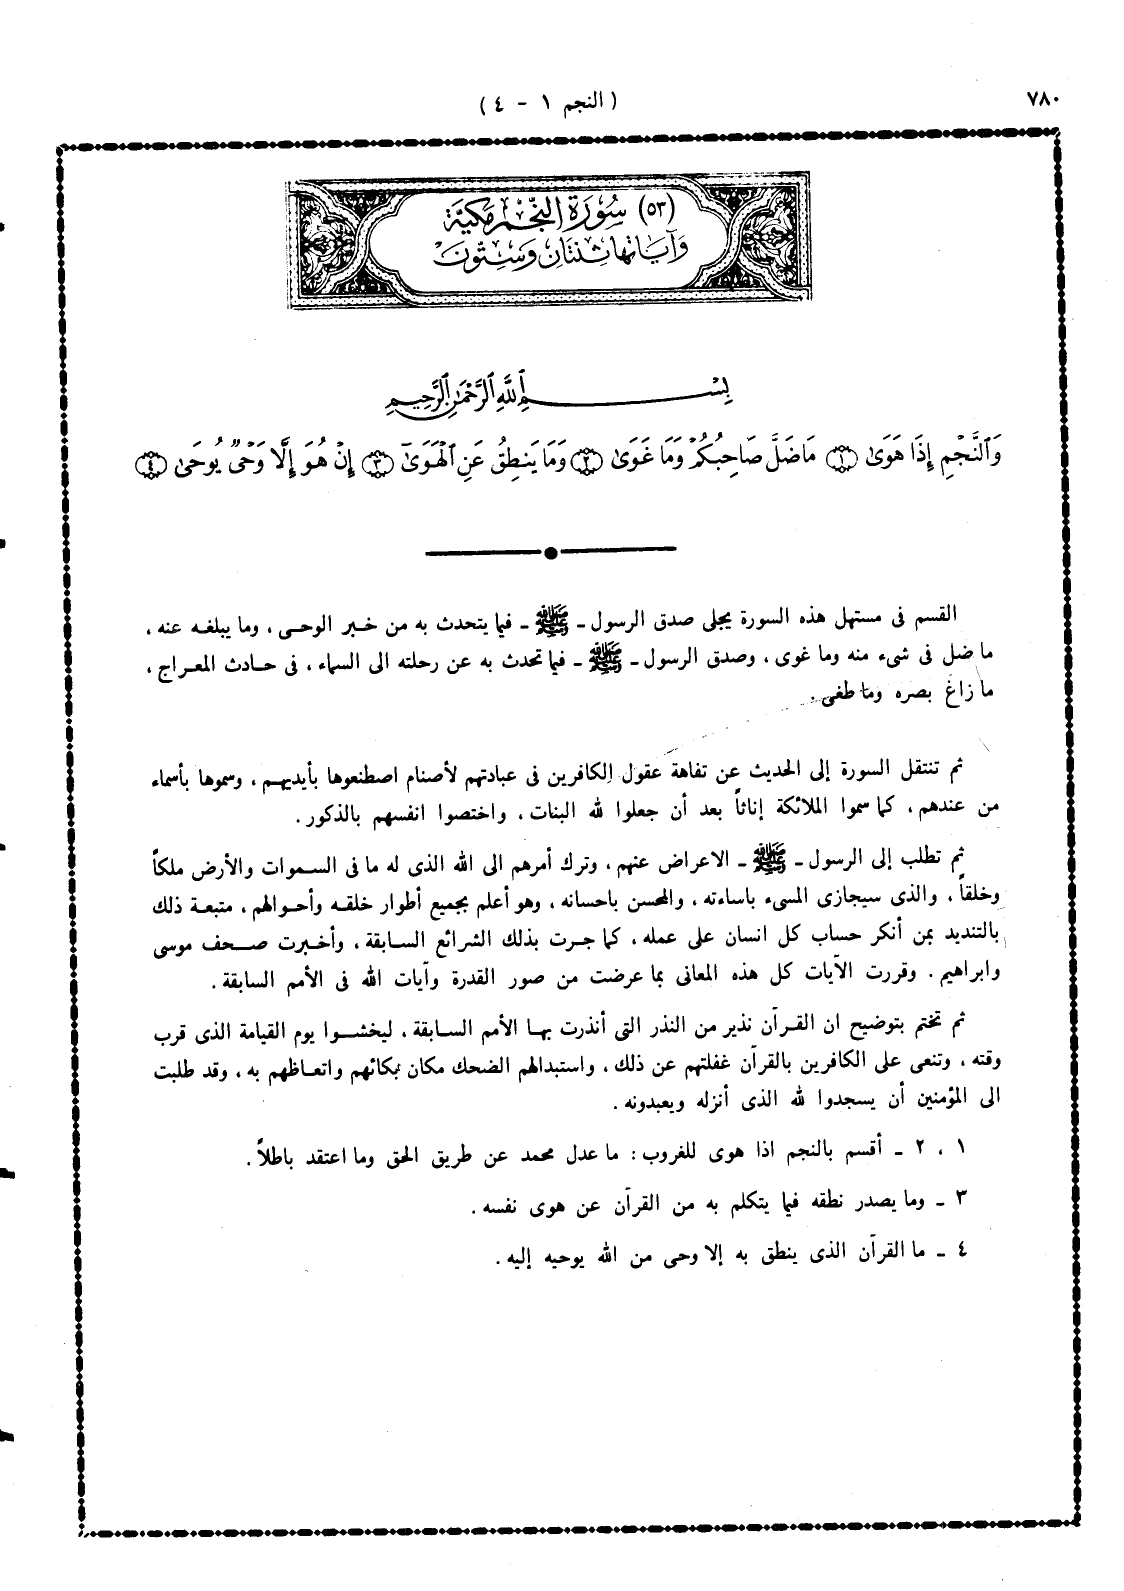 ٧٨٠
( النجم ١ - ٤ )
(٥٣) سُورَة النّجم مَكيّة
وَآيَاتهَا ثِنتَان وَسِتّونَ
بِسْمِ اللَّهِ الرَّحْمَٰنِ الرَّحِيمِ
وَٱلنَّجْمِ إِذَا هَوَىٰ ١ مَا ضَلَّ صَاحِبُكُمْ وَمَا غَوَىٰ ٢ وَمَا يَنطِقُ عَنِ ٱلْهَوَىٰٓ ٣ إِنْ هُوَ إِلَّا وَحْىٌ يُوحَىٰ ٤
القسم فى مستهل هذه السورة يجلى صدق الرسول - ﷺ - فيما يتحدث به من خبر الوحى ، وما يبلغه عنه ،
ما ضل فى شىء منه وما غوى ، وصدق الرسول - ﷺ - فيما تحدث به عن رحلته الى السماء ، فى حادث المعراج ،
ما زاغ بصره وما طغى .
ثم تنتقل السورة إلى الحديث عن تفاهة عقول الكافرين فى عبادتهم لأصنام اصطنعوها بأيديهم ، وسموها بأسماء
من عندهم ، كما سموا الملائكة إناثاً بعد أن جعلوا لله البنات ، واختصوا انفسهم بالذكور .
ثم تطلب إلى الرسول - ﷺ - الاعراض عنهم ، وترك أمرهم الى الله الذى له ما فى السموات والأرض ملكاً
وخلقاً ، والذى سيجازى المسىء باساءته ، والمحسن باحسانه ، وهو أعلم بجميع أطوار خلقه وأحوالهم ، متبعة ذلك
بالتنديد بمن أنكر حساب كل انسان على عمله ، كما جرت بذلك الشرائع السابقة ، وأخبرت صحف موسى
وابراهيم . وقررت الآيات كل هذه المعانى بما عرضت من صور القدرة وآيات الله فى الأمم السابقة .
ثم تختم بتوضيح ان القرآن نذير من النذر التى أنذرت بها الأمم السابقة ، ليخشوا يوم القيامة الذى قرب
وقته ، وتنعى على الكافرين بالقرآن غفلتهم عن ذلك ، واستبدالهم الضحك مكان بكائهم واتعاظهم به ، وقد طلبت
الى المؤمنين أن يسجدوا لله الذى أنزله ويعبدونه .
١ ، ٢ - أقسم بالنجم اذا هوى للغروب : ما عدل محمد عن طريق الحق وما اعتقد باطلاً .
٣ - وما يصدر نطقه فيما يتكلم به من القرآن عن هوى نفسه .
٤ - ما القرآن الذى ينطق به إلا وحى من الله يوحيه إليه .